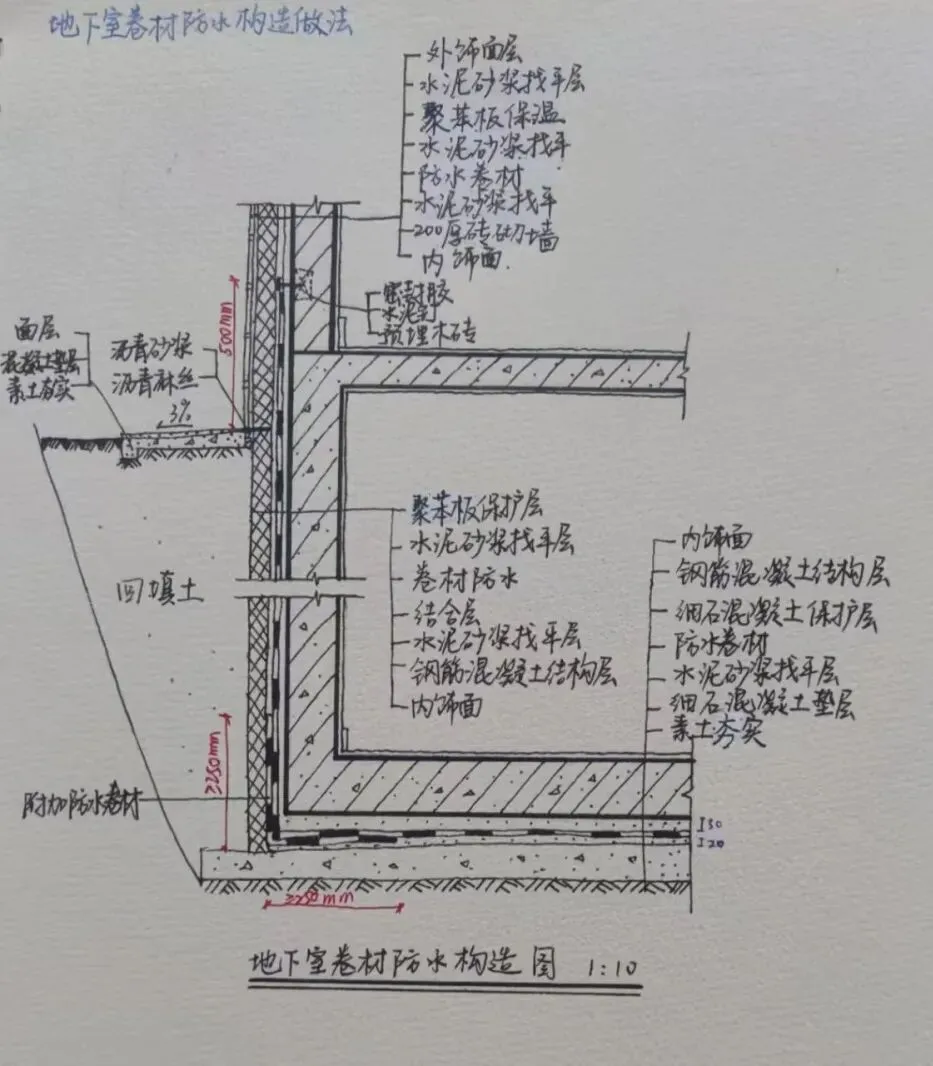 地下室卷材防水构造做法
外饰面层
水泥砂浆找平层
聚苯板保温
水泥砂浆找平
防水卷材
水泥砂浆找平
200厚砖砌墙
内饰面
密封胶
水泥钉
预埋木砖
500mm
面层
混凝土垫层
素土夯实
沥青砂浆
沥青麻丝
3%
聚苯板保护层
水泥砂浆找平层
卷材防水
结合层
水泥砂浆找平层
钢筋混凝土结构层
内饰面
回填土
内饰面
钢筋混凝土结构层
细石混凝土保护层
防水卷材
水泥砂浆找平层
细石混凝土垫层
素土夯实
≥250mm
附加防水卷材
50
20
≥250mm
地下室卷材防水构造图 1:10